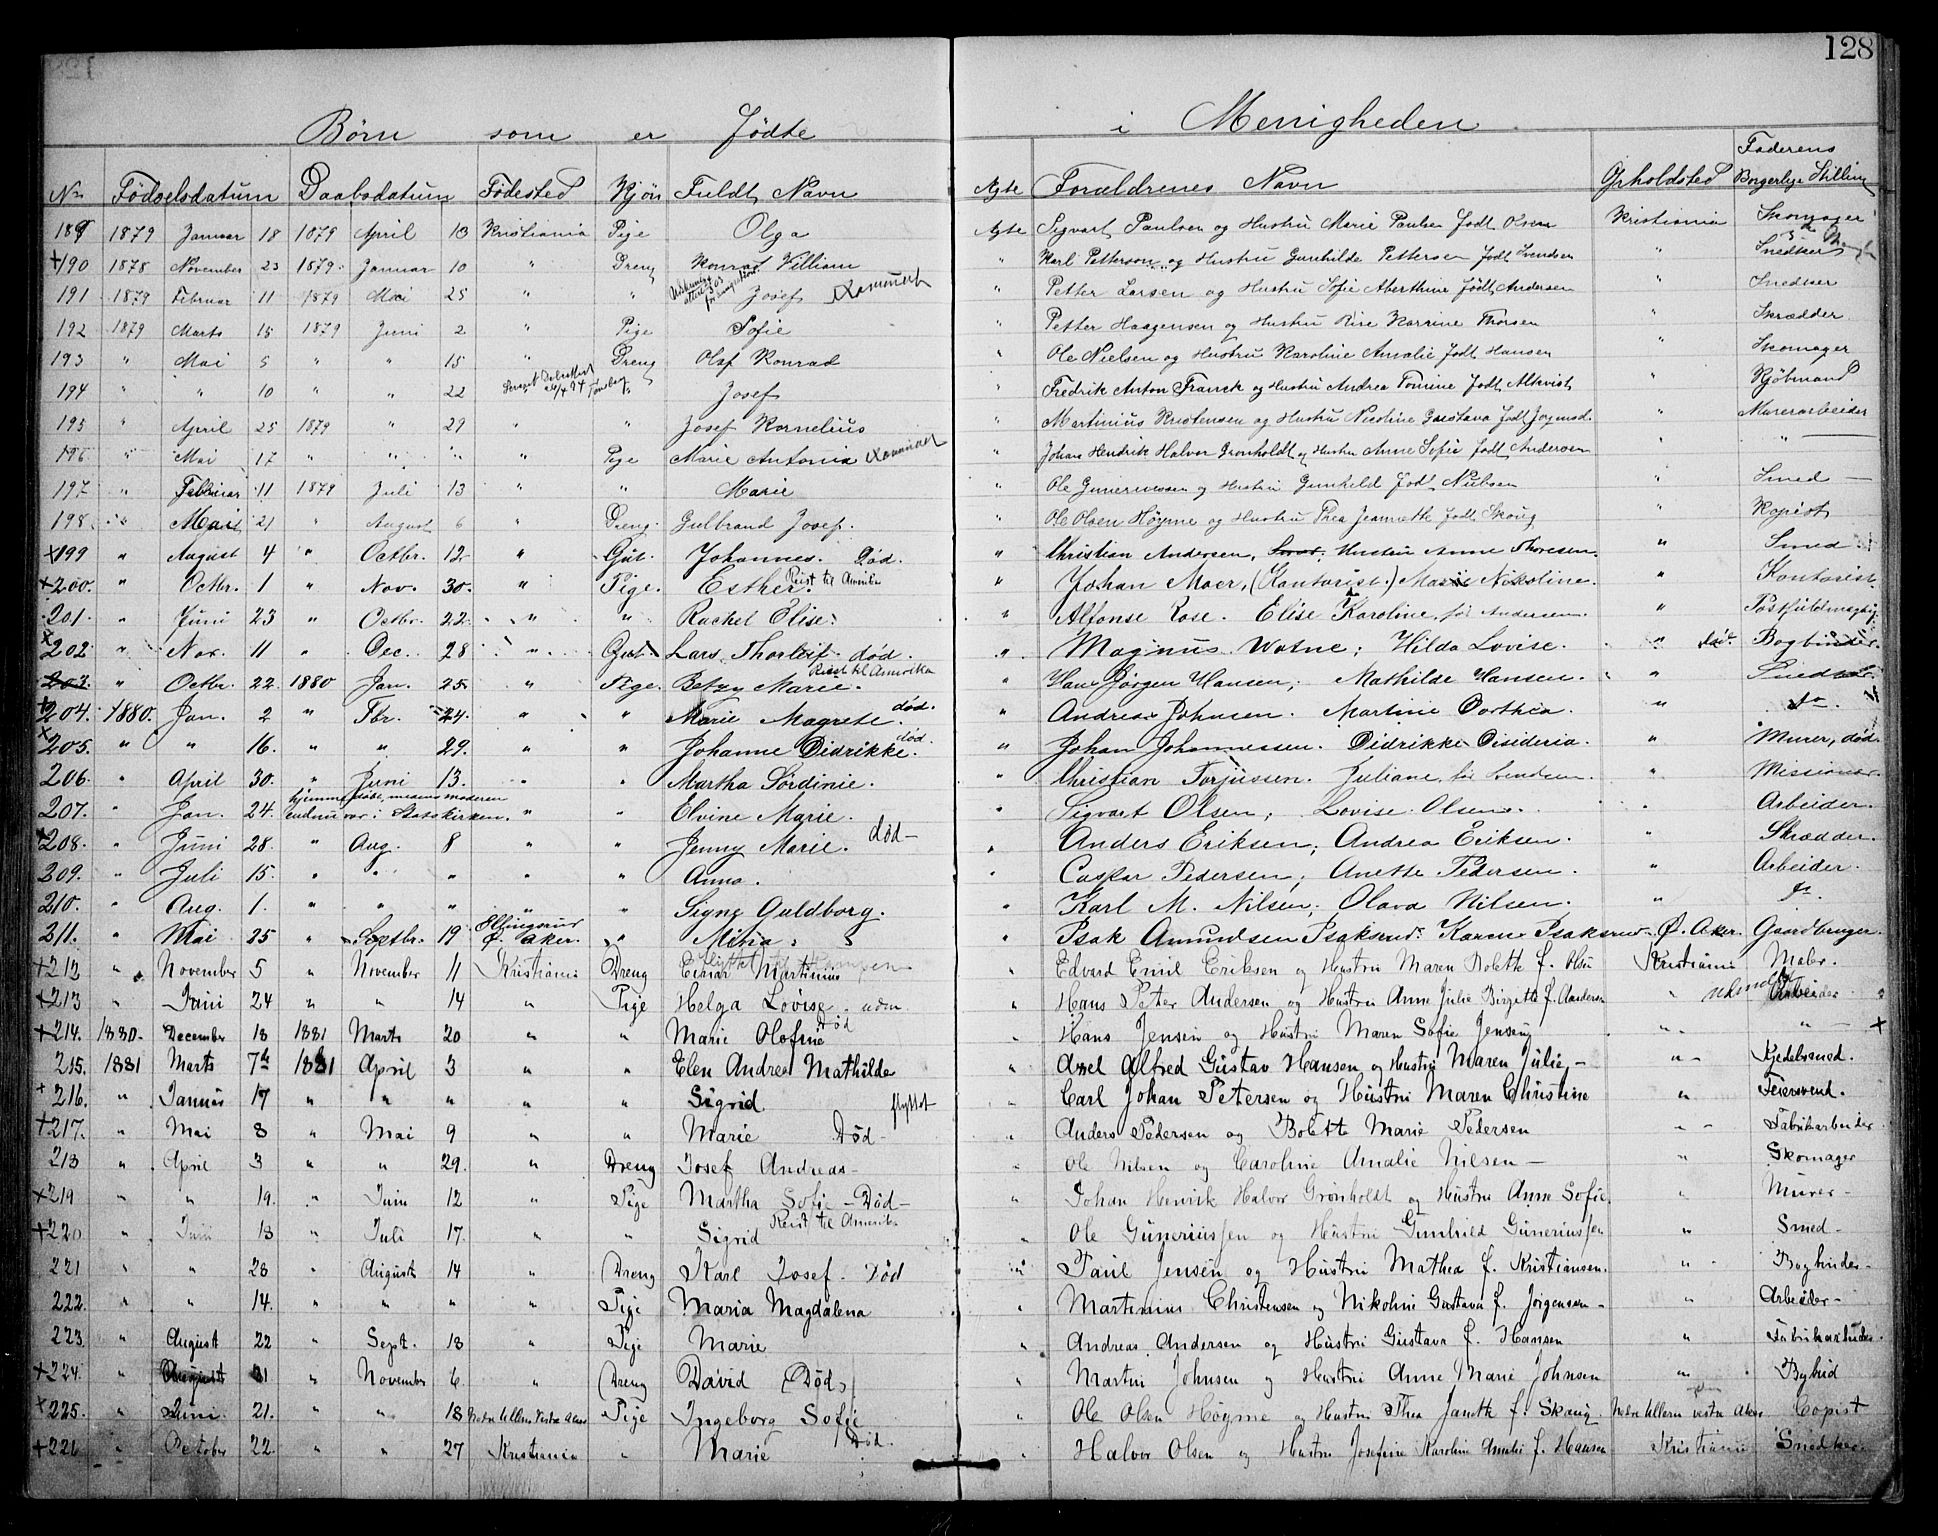 128
Børn som er Fødte i Menigheden
No Fødselsdatum Daabsdatum Fødested Kjøn Fuldt Navn Ægte Forældrenes Navn Opholdsted Faderens Borgerlige Stilling
189 1879 Januar 18 1879 April 13 Kristiania Pige Olga Ægte Sigvart Paulsen og Hustru Marie Paulsen Født Olsen Kristiania Skomager
+190 1878 November 23 1879 Januar 10 " Dreng Konrad Villiam " Karl Petterson og Hustru Gunhilde Pettersen Født Svendsen " Snedker
191 1879 Februar 11 1879 Mai 25 " " Josef " Petter Larsen og Hustru Sofie Født Andersen " Snedker
192 1879 Marts 15 1879 Juni 2 " Pige Sofie " Petter Haagensen og Hustru Karrine Thorsen " Skrædder
193 " Mai 5 " " 15 " Dreng Olaf Konrad " Ole Nielsen og Hustru Karoline Amalie Født Hansen " Skomager
194 " " 10 " " 22 " Josef " Fredrik Anton Franck og Hustru Andrea Tomine Født Alkvist " Kjøbmand
195 " April 25 1879 " 29 " " Josef Kornelius " Martinius Kristensen og Hustru Nicoline Gustava Født " Murerarbeider
196 " Mai 17 " " " " Pige Marie Antonia " Johan Hendrik Halvor Grønholdt og Hustru Anne Sofie Født Andersen " "
197 " Februar 11 1879 Juli 13 " " Marie " Ole Gunerussen og Hustru Gunhild Født Nielsen " Smed
198 " 21 " August 6 " Dreng Gulbrand Josef. " Ole Olsen Høyme og Hustru Thea Jeanette Født Skoug " Kopist
×199 " August 4 " Octbr. 12 " Gut. Johannes. Død. " Christian Andersen, Hustru Anne Thoresen. " Smed
+200. " Octbr. 1 " Nov. 30. " Pige. Esther. Reist til " Johan Moer, (Kantorist.) Marie Nikoline. " Kontorist.
201. " Juni 23 " Octbr. 22. " " Rachel Elise. " Alfonse Rose. Elise Karoline, før Andersen. "
×202 " Nov. 11 " Dec. 28 " Gut Lars Thorleif. død. " Magnus Watne; Hilda Lovise. " død. Bogbinder.
203. " Octbr. 22. 1880 Jan. 25. " Pige. Betzy Marie. Reist til Amerika " Hans Jørgen Hansen; Mathilde Hansen. " Snedker.
+204. 1880. Jan. 2 " Fbr. 24. " " Marie Magrete. død. " Andreas Johnsen. Martine Dorthea. " do
×205. " " 16. " " 29. " " Johanne Didrikke. død. " Johan Johannessen. Didrikke Disideria. " Murer, død.
206. " April 30. " Juni 13. " " Martha Sørdinie. " Christian Torjussen. Juliane, før Svendsen. " Missionær.
207. " Jan. 24. hjemmedøbt, medens moderen endnu var i Statskirken. " " Elvine Marie. " Sigvart Olsen; Lovise Olsen. " Arbeider.
+208. " Juni 28. " Aug. 8 " " Jenny Marie. død " Anders Eriksen; Andrea Eriksen. " Skrædder.
209. " Juli 15. " " " " " Anna. " Caspar Pedersen; Anette Pedersen. " Arbeider.
210. " Aug. 1. " " " " " Signe Guldborg. " Karl M. Nilsen; Olava Nilsen. "
211. " Mai 25 " Septbr. 19 Ellingsrud Ø. Aker. " Minia. " Isak Amundsen Isaksrud. Karen Isaksrud. Ø. Aker. Gaardbruger.
+212 " November 5 " November 11 Kristiania Dreng Einar Martinius " Edvard Emil Eriksen og Hustru Maren Bolette f. Olsen Kristiania Maler.
+213 " Juni 24 " " 14 " Pige Helga Lovise. " Hans Peter Andersen og Hustru Anne Julie Birgitte f. Andersen " Arbeider
+214. 1880. December 18 1881 Marts 20 " " Marie Olofine Død " Hans Jensen og Hustru Maren Sofie Jensen " " +
215. 1881 Marts 7de 1881 April 3 " " Elen Andrea Mathilde " Axel Alfred Gustav Hansen og Hustru Maren Julie " Kjedelsmed.
+216. " Januar 17 " " " " " Sigrid flyttet " Carl Johan Petersen og Hustru Maren Christine " Feiersvend.
+217. " Mai 8 " Mai 9 " " Marie Død " Anders Pedersen og Bolette Marie Pedersen " Fabrikarbeider
218 " April 3 " " 29. " Dreng Josef Andreas " Ole Nilsen og Caroline Amalie Nilsen " Skomager
+219 " " 19. " Juni 12 " Pige Martha Sofie Død " Johan Henrik Halvor Grønholdt og Hustru Anne Sofie. " Murer
+220 " Juni 13 " Juli 17. " " Sigrid Reist til Amerika " Ole Guneriussen og Hustru Gunhild Guneriussen " Smed
221 " " 28 " August 14 " Dreng Karl Josef. Død " Paul Jensen og Hustru Mathea f. Kristiansen. " Bogbinder
222. " " 14. " " " " Pige Maria Magdalena " Martinius Christensen og Nikoline Gustava f. Jørgensen " Arbeider
223. " August 22 " Sept. 18 " Pige Marie " Andreas Andersen og Hustru Gustava f. Hansen " Fabrikarbeider
+224. " August 31 " November 6. " Dreng David (Død) " Martin Johnsen og Hustru Anne Marie Johnsen " Bybud
×225. " Juni 21. " " 13 Nedre Ullern Vestre Aker Pige Ingeborg Sofie " Ole Olsen Høyme og Hustru Thea Janette f. Skaug. Nedre Ullern vestre Aker Copist
+226 " October 22. " " 27 Kristiania " Marie Død. " Halvor Olsen og Hustru Josefine Karoline Amalie f. Hansen Kristiania Snedker.